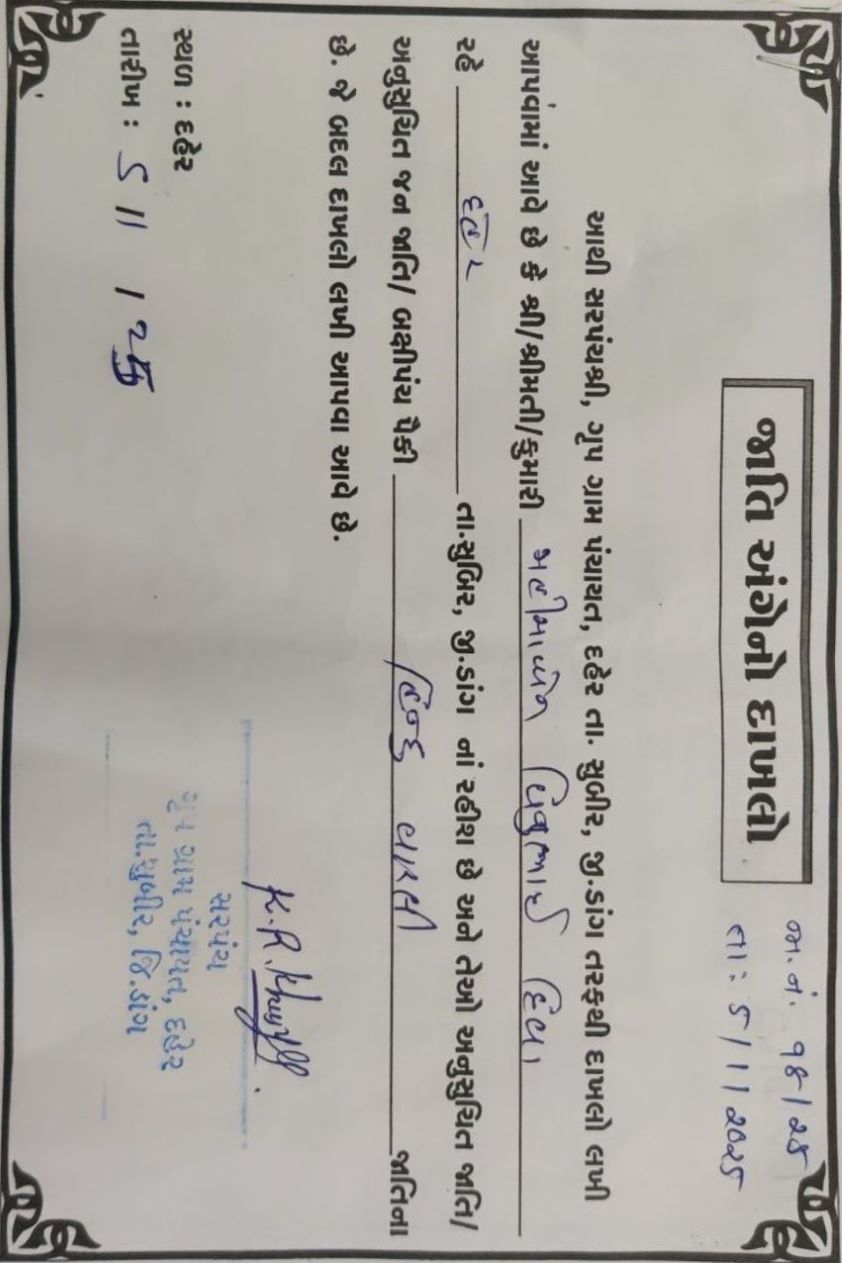 જાતિ અંગેનો દાખલો
જા.નં. ૧૪/૨૫
તા: ૬/૧/૨૦૨૫
આથી સરપંચશ્રી, ગૃપ ગ્રામ પંચાયત, દહેર તા. સુબીર, જી.ડાંગ તરફથી દાખલો લખી
આપવામાં આવે છે કે શ્રી/શ્રીમતી/કુમારી વિજુભાઈ
રહે દહેર તા.સુબિર, જી.ડાંગ નાં રહીશ છે અને તેઓ અનુસુચિત જાતિ/
અનુસુચિત જન જાતિ/ બક્ષીપંચ પૈકી હિન્દુ વારલી જાતિના
છે. જે બદલ દાખલો લખી આપવા આવે છે.
સ્થળ : દહેર
તારીખ :
સરપંચ
ગૃપ ગ્રામ પંચાયત, દહેર
તા.સુબીર, જિ.ડાંગ